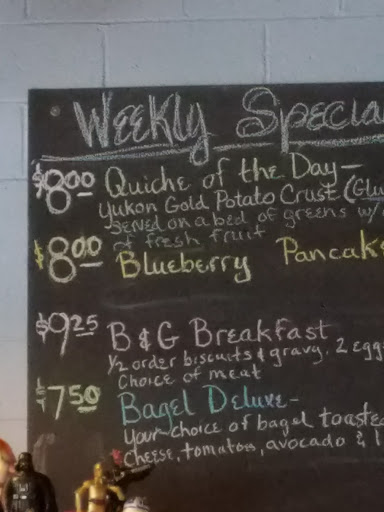 Weekly Specia
$8.00 Quiche of the Day—
Yukon Gold Potato Crust (Glu
served on a bed of greens w/
of fresh fruit
$8.00 Blueberry Pancak
$9.25 B & G Breakfast
1/2 order biscuits & gravy. 2 egg
Choice of meat
$7.50 Bagel Deluxe-
Your choice of bagel toasted
cheese, tomatoes, avocado &